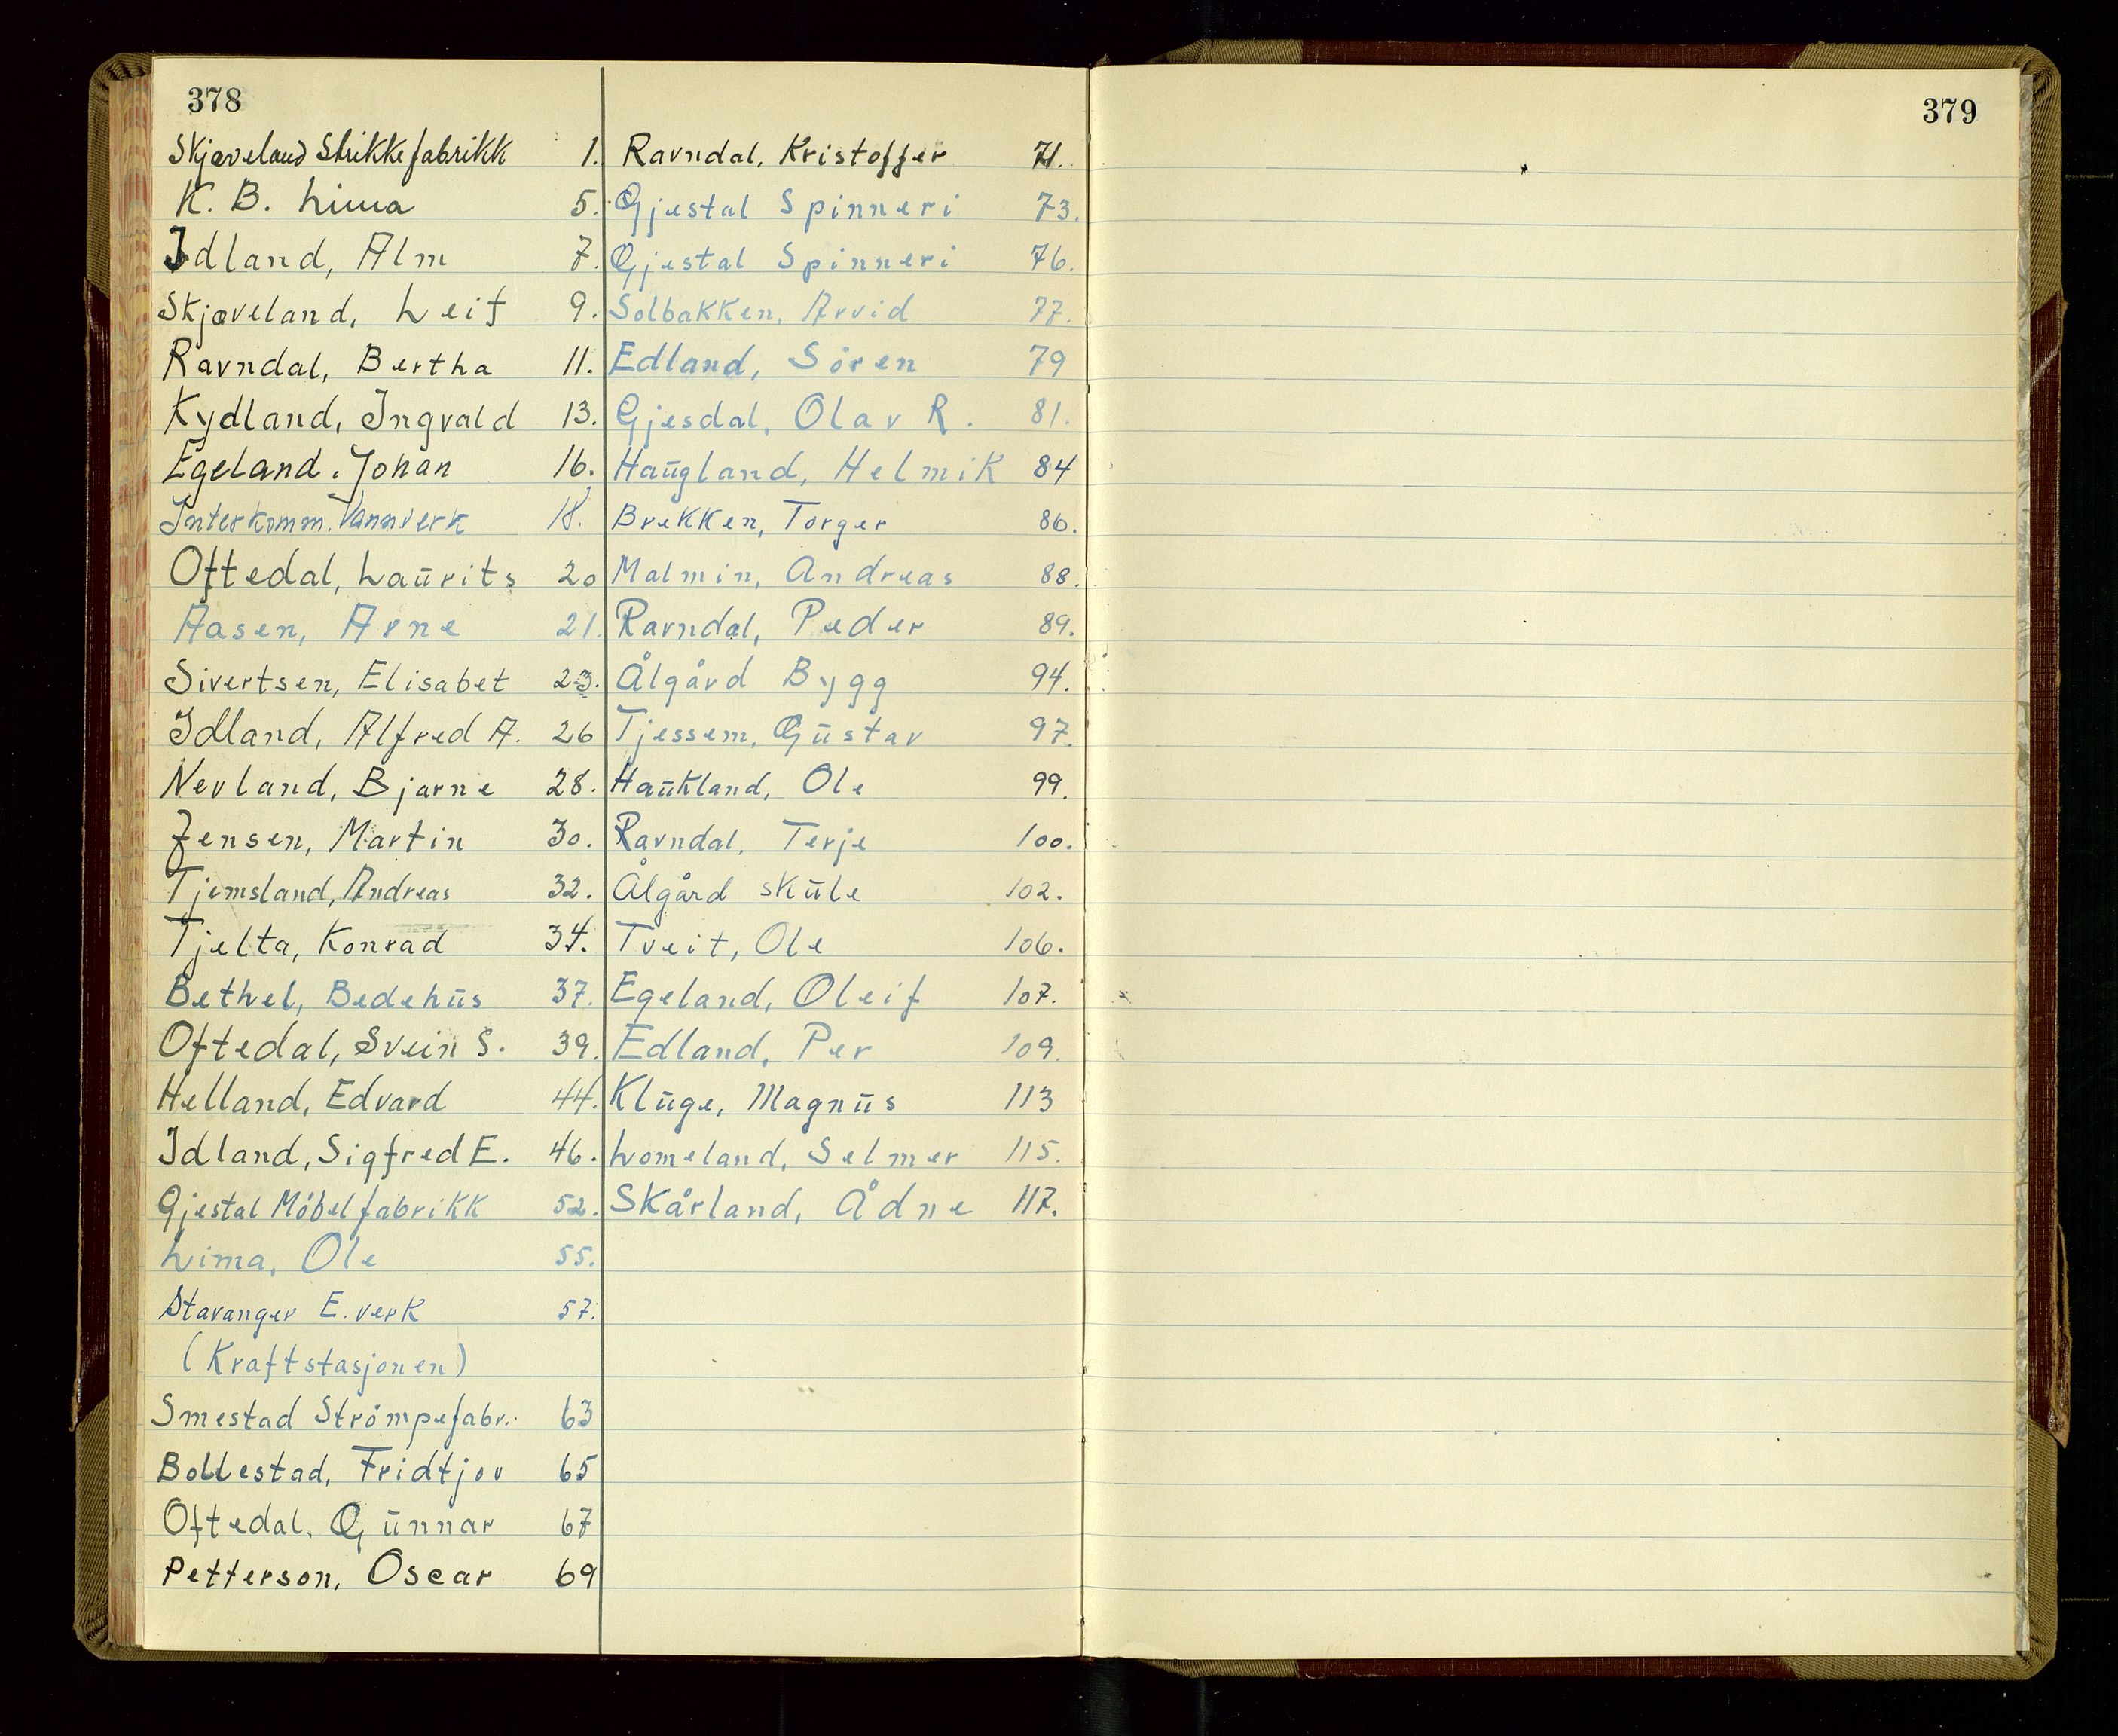 378
Skjæveland Strikkefabrikk 1.
K. B. Lima 5.
Idland, Alm 7.
Skjæveland, Leif 9.
Ravndal, Bertha 11.
Kydland, Ingvald 13.
Egeland, Johan 16.
Interkomm. Vannverk 18.
Oftedal, Laurits 20
Aasen, Arne 21.
Sivertsen, Elisabet 23.
Idland, Alfred A. 26
Nevland, Bjarne 28.
Jensen, Martin 30.
Tjemsland, Andreas 32.
Tjelta, Konrad 34.
Bethel, Bedehus 37.
Oftedal, Svein S. 39.
Helland, Edvard 44.
Idland, Sigfred E. 46.
Gjestal Möbelfabrikk 52.
Lima, Ole 55.
Stavanger E.verk 57.
(Kraftstasjonen)
Smestad Strömpefabr. 63
Bollestad, Fridtjov 65
Oftedal, Gunnar 67
Petterson, Oscar 69
Ravndal, Kristoffer 71.
Gjestal Spinneri 73.
Gjestal Spinneri 76.
Solbakken, Arvid 77.
Edland, Sören 79
Gjesdal, Olav R. 81.
Haugland, Helmik 84
Brekken, Torger 86.
Malmin, Andreas 88.
Ravndal, Peder 89.
Ålgård Bygg 94.
Tjessem, Gustav 97.
Haukland, Ole 99.
Ravndal, Terje 100.
Ålgård skule 102.
Tveit, Ole 106.
Egeland, Oleif 107.
Edland, Per 109.
Kluge, Magnus 113
Lomeland, Selmer 115.
Skårland, Ådne 117.
379